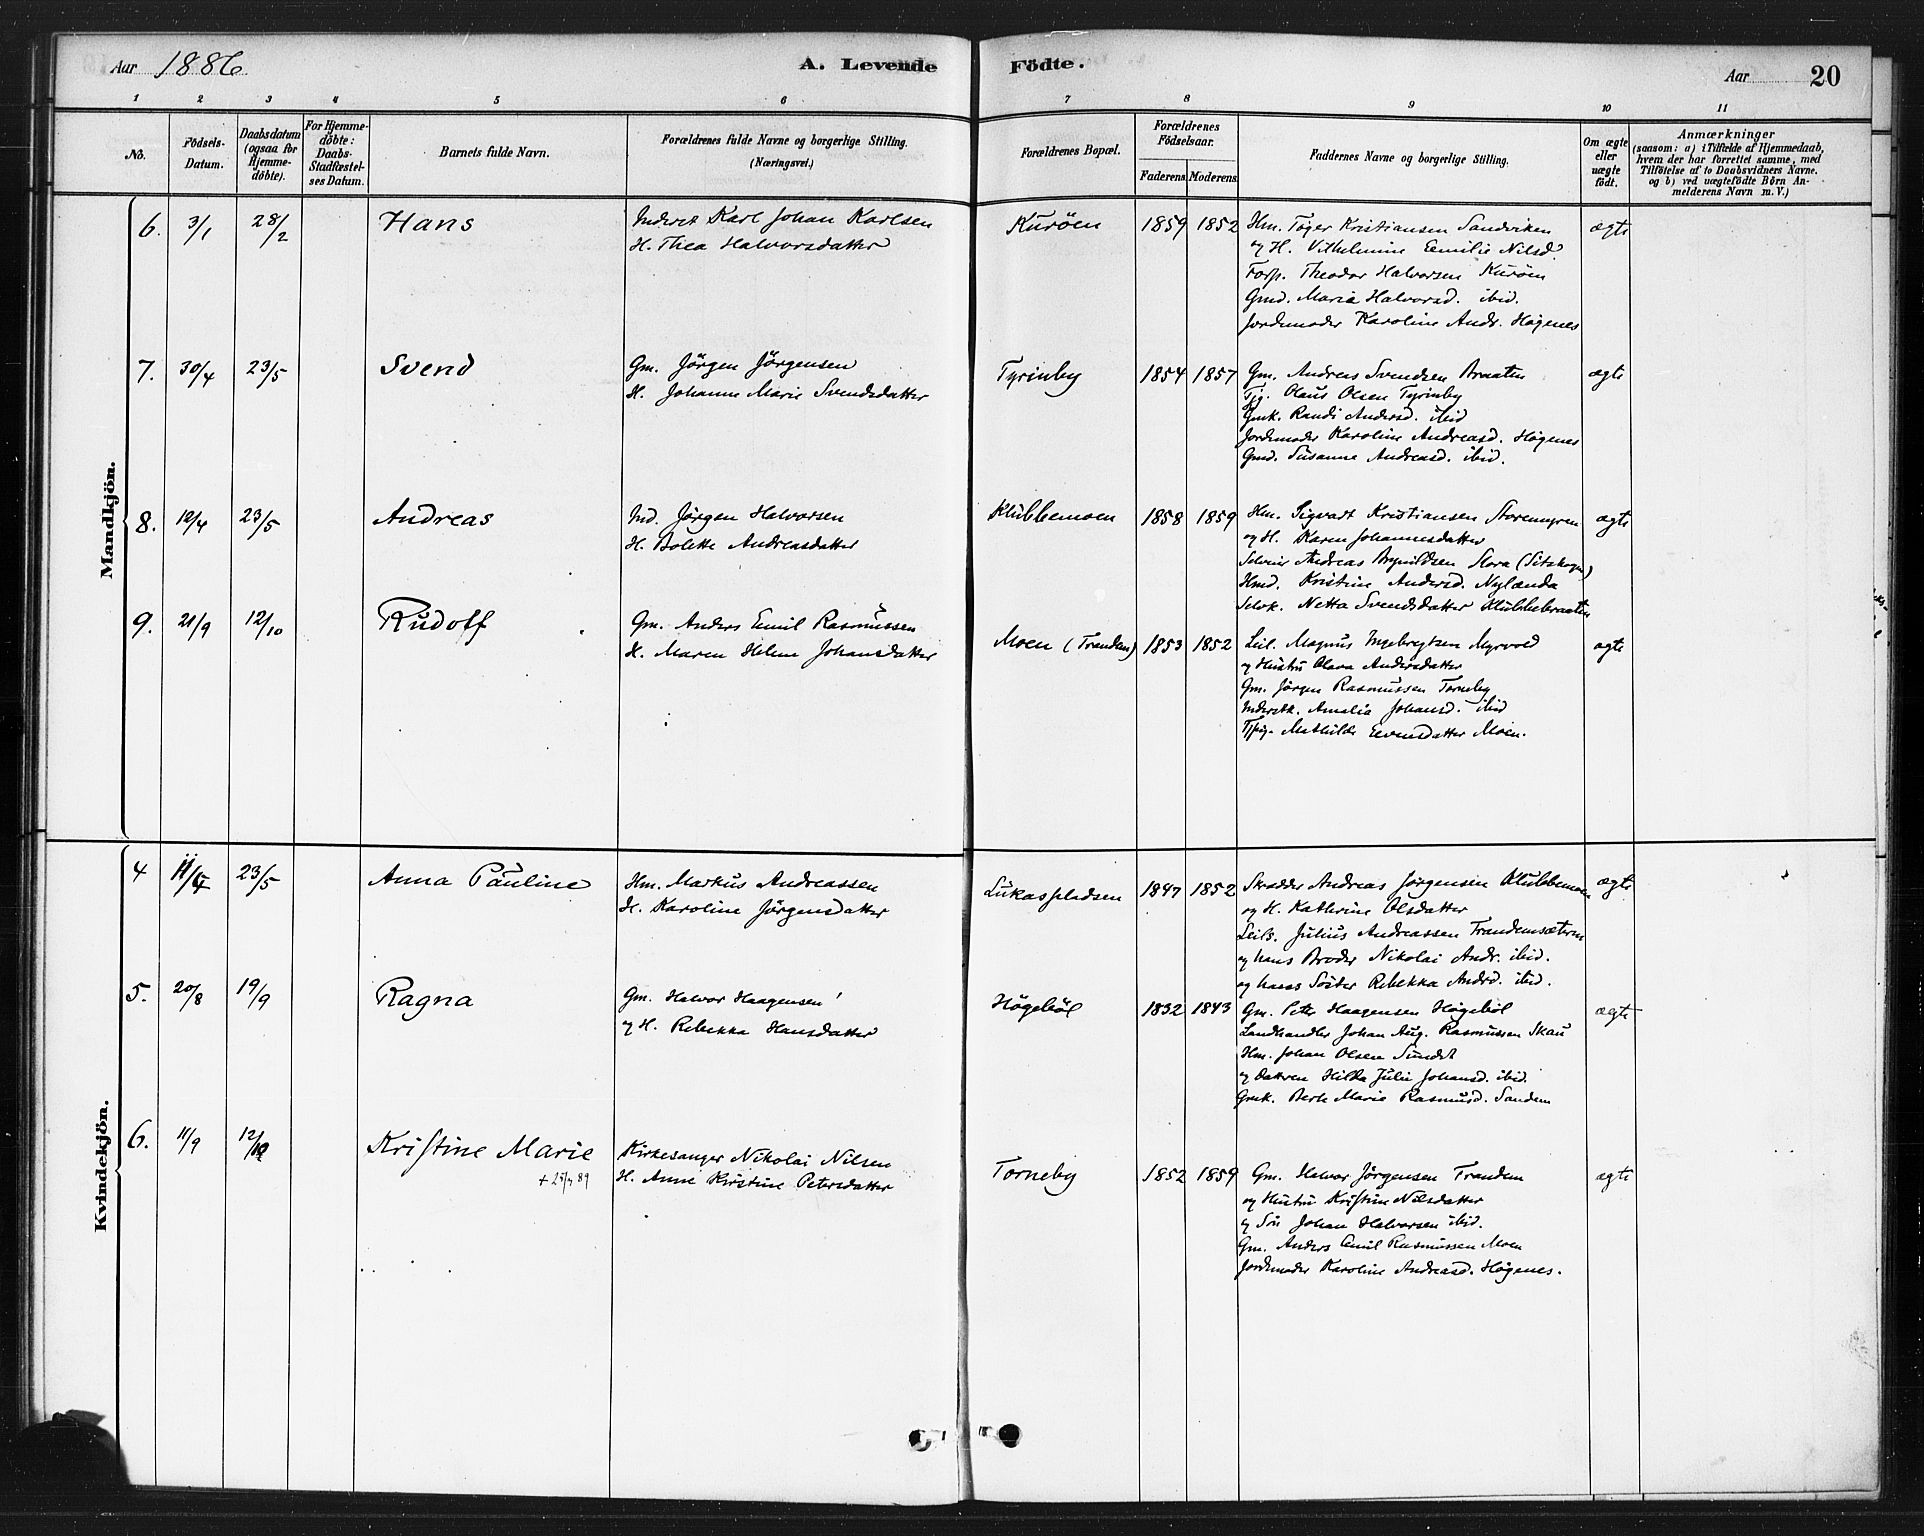 Aar 1886
A. Levende Födte.
Aar 20
1 2 3 4 5 6 7 8 9 10 11
No.
Födsels-Datum.
Daabsdatum (ogsaa for Hjemme-döbte).
For Hjemme-döbte: Daabs-Stadfæstel-ses Datum.
Barnets fulde Navn.
Forældrenes fulde Navne og borgerlige Stilling. (Næringsvei.)
Forældrenes Bopæl.
Forældrenes Födselsaar.
Faderens. Moderens.
Faddernes Navne og borgerlige Stilling.
Om ægte eller uægte födt.
Anmærkninger
(saasom: a) i Tilfælde af Hjemmedaab,
hvem der har forrettet samme, med
Tilföielse af to Daabsvidners Navne.
og b) ved uægtefödte Börn An-
melderens Navn m. V.)
Mandkjön.
6. 3/1 28/2 Hans
Inderst Karl Johan Karlsen
H. Thea Halvorsdatter
Kuröen 1859 1852
Hm. Töger Kristiansen Sandviken
og H. Vilhelmine Eemilie Nilsd.
Forp. Theodor Halvorsen Kuröen
Gmd. Maria Halvorsd. ibid.
Jordemoder Karoline Andr. Högenes
ægte
7. 30/4 23/5 Svend
Gm. Jörgen Jörgensen
H. Johanne Marie Svendsdatter
Tyrinby 1854 1857
Gm. Andreas Svendsen Braaten
Tjg. Olaus Olsen Tyrinby
Gmk. Randi Andersd. ibid
Jordemoder Karoline Andreasd. Högenes
Gmd. Susanne Andreasd. ibid.
ægte
8. 12/4 23/5 Andreas
Ind. Jörgen Halvorsen
H. Bolette Andreasdatter
Klubbemoen 1858 1859
Hm. Sigvart Kristiansen Storemyren
og H. Karen Johannesdatter
Selveier Andreas Brynildsen Slora (Sitskogen)
Hmd. Kristine Andersd. Nylænda
Selvk. Netta Svendsdatter Klubbebraaten
ægte
9. 21/9 12/10 Rudolf
Gm. Anders Emil Rasmussen
H. Maren Helene Johansdatter
Moen (Trandem) 1853 1852
Leil. Magnus Ingebregtsen Myrvold
og Hustru Olava Andersdatter
Gm. Jörgen Rasmussen Torneby
Inderstk. Amalia Johansd. ibid
Tjpig. Mathilde Evensdatter Moen.
ægte
Kvindekjön.
4 11/4 23/5 Anna Pauline
Hm. Markus Andreassen
H. Karoline Jörgensdatter
Lukaspladsen 1847 1852
Skrædder Andreas Jörgensen Klubbemoen
og H. Kathrine Olsdatter
Leils. Julius Andreassen Trandemsæteren
og hans Broder Nikolai Andr. ibid.
og hans Söster Rebekka Andrd. ibid.
ægte
5. 20/8 19/9 Ragna
Gm. Halvor Haagensen
og H. Rebekka Hansdatter
Högeböl 1832 1843
Gm. Peter Haagensen Högeböl
Landhandler Johan Aug. Rasmussen Skau
Hm. Johan Olsen Sundet
og Datteren Hilda Julie Johansd. ibid.
Gmk. Berte Marie Rasmusd. Sandem
ægte
6. 11/9 12/10 Kristine Marie
Kirkesanger Nikolai Nilsen
H. Anne Kirstine Petersdatter
Torneby 1852 1859
Gm. Halvor Jörgensen Trandem
og Hustru Kristine Nilsdatter
og Sön Johan Halvorsen ibid.
Gm. Anders Emil Rasmussen Moen
Jordemoder Karoline Andreasd. Högenes.
ægte